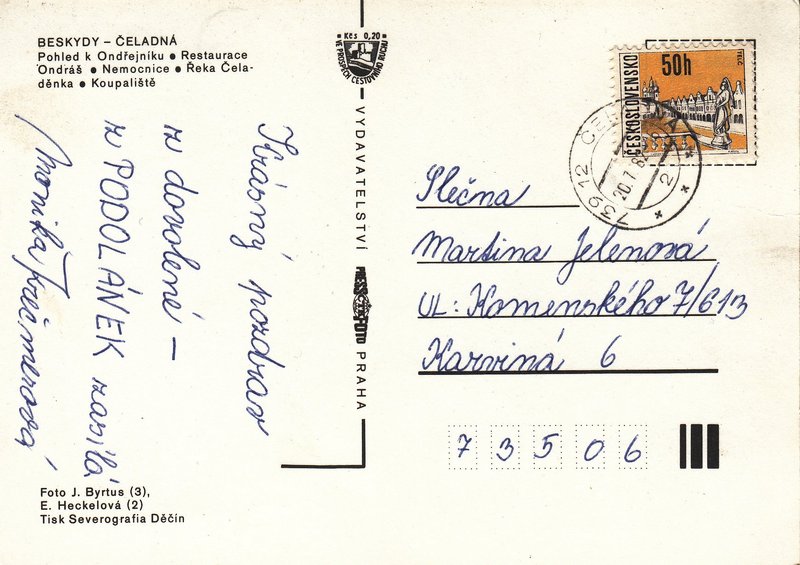 BESKYDY – ČELADNÁ
Pohled k Ondřejníku ● Restaurace
Ondráš ● Nemocnice ● Řeka Čela-
děnka ● Koupaliště
Kčs 0,20
VE PROSPĚCH CESTOVNÍHO RUCHU
VYDAVATELSTVÍ PRESSFOTO PRAHA
Krásný pozdrav
z dovolené –
z PODOLÁNEK zasílá
Monika
Foto J. Byrtus (3),
E. Heckelová (2)
Tisk Severografia Děčín
ČESKOSLOVENSKO
50h
TELČ
739 12 ČELADNÁ 2
20.7.8
Slečna
Martina Jelenová
UL: Komenského 7/613
Karviná 6
73506